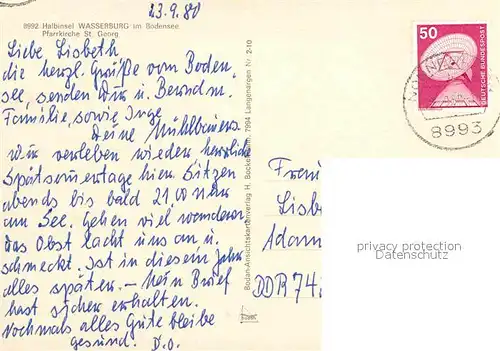 23.9.80
8992 Halbinsel WASSERBURG im Bodensee
Pfarrkirche St. Georg
Liebe Lisbeth
die herzl. Grüße vom Boden,
see, senden Dir u. Bernd u.
Familie, sowie Inge
Deine Mühlbauers
Wir verleben wieder herrliche
Spätsommertage hier. Sitzen
abends bis bald 21.00 Uhr
am See. Gehen viel wandern
das Obst lacht uns an u.
schmeckt. Ist in diesem Jahr
alles später. – Mein Brief
hast sicher erhalten.
Nochmals alles Gute bleibe
gesund. D.O.
Bodan-Ansichtskartenverlag H. Bockelmann, 7994 Langenargen Nr. 2-10
50
DEUTSCHE BUNDESPOST
8993
Frau
Lisb
Adam
DDR 74.
privacy protection
Datenschutz